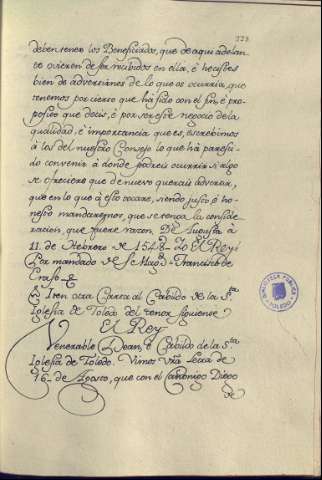 223
deben tener los Beneficiados, que de aqui adelan-
te ovieren de ser recibidos en ella, è hecistes
bien de advertirnos de lo que os ocurria, que
tenemos por cierto que hà sido con el fin, è pro-
posito que decis, è por ser este negocio de la
qualidad, è importancia que es, escrebimos
à los del nuestro Consejo lo que hà pareci-
do convenir à donde podreis ocurrir si algo
se ofreciere que de nuevo querais advertir,
que en lo que à esto tocare, siendo justo è ho-
nesto mandaremos, que se tenga la conside-
racion, que fuere razon. De Augusta à
11. de Hebrero de 1548. Yo El Rey.
Por mandado de S. Mag.d Francisco de
Eraso.
Iten otra Carta al Cabildo de la S.ta
Iglesia de Toledo del tenor siguiente
El Rey
Venerable Dean, è Cabildo de la S.ta
Iglesia de Toledo. Vimos vra letra de
16. de Agosto, que con el Canonigo Diego
de
BIBLIOTECA PUBLICA
TOLEDO